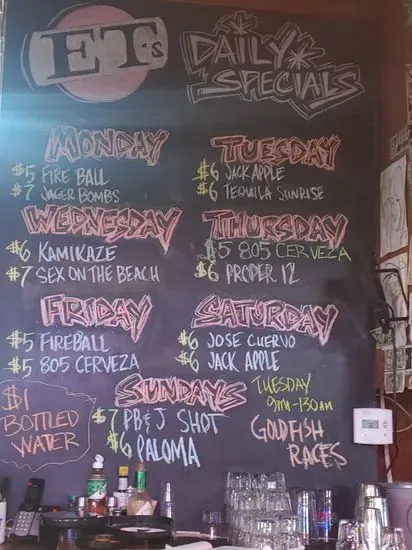 ET's
DAILY
SPECIALS
MONDAY
$5 FIRE BALL
$7 JAGER BOMBS
TUESDAY
$6 JACK APPLE
$6 TEQUILA SUNRISE
WEDNESDAY
$6 KAMIKAZE
$7 SEX ON THE BEACH
THURSDAY
$5 805 CERVEZA
$6 PROPER 12
FRIDAY
$5 FIREBALL
$5 805 CERVEZA
SATURDAY
$6 JOSE CUERVO
$6 JACK APPLE
SUNDAYS
$7 PB&J SHOT
$6 PALOMA
$1
BOTTLED
WATER
TUESDAY
9PM-130AM
GOLDFISH
RACES